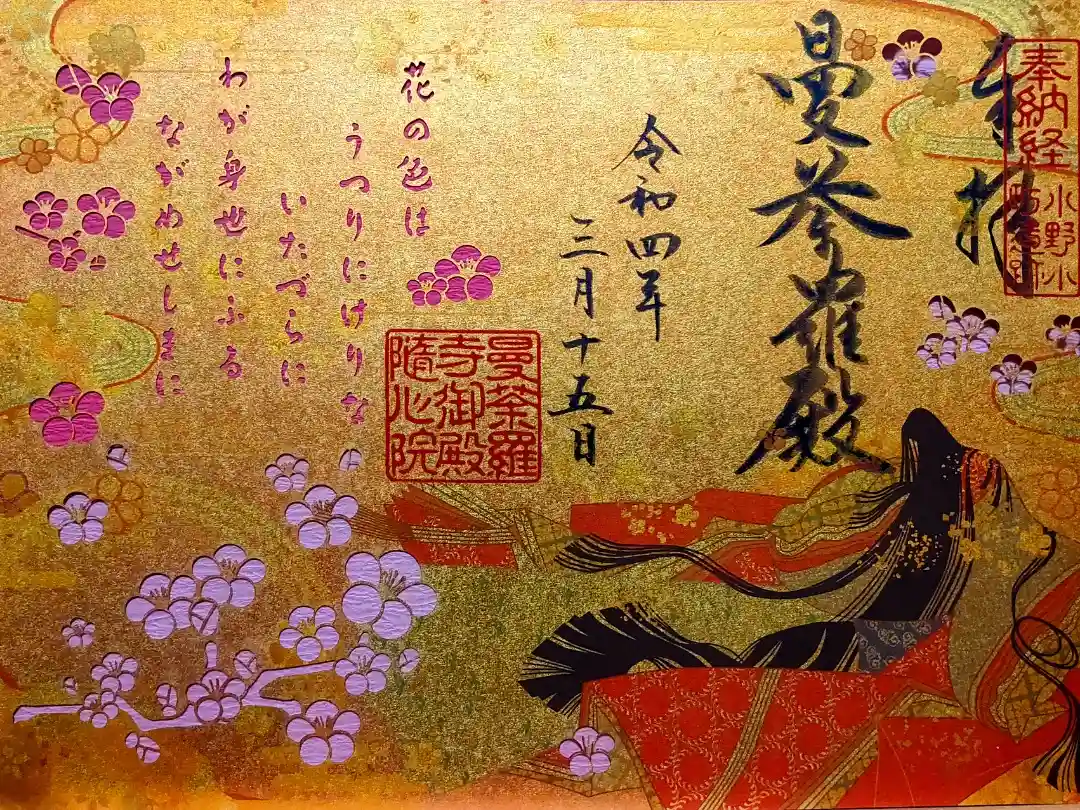 奉拝
奉納経
小野小
曼荼羅殿
令和四年
三月十五日
曼荼羅
寺御殿
隨心院
花の色は
うつりにけりな
いたづらに
わが身世にふる
ながめせしまに